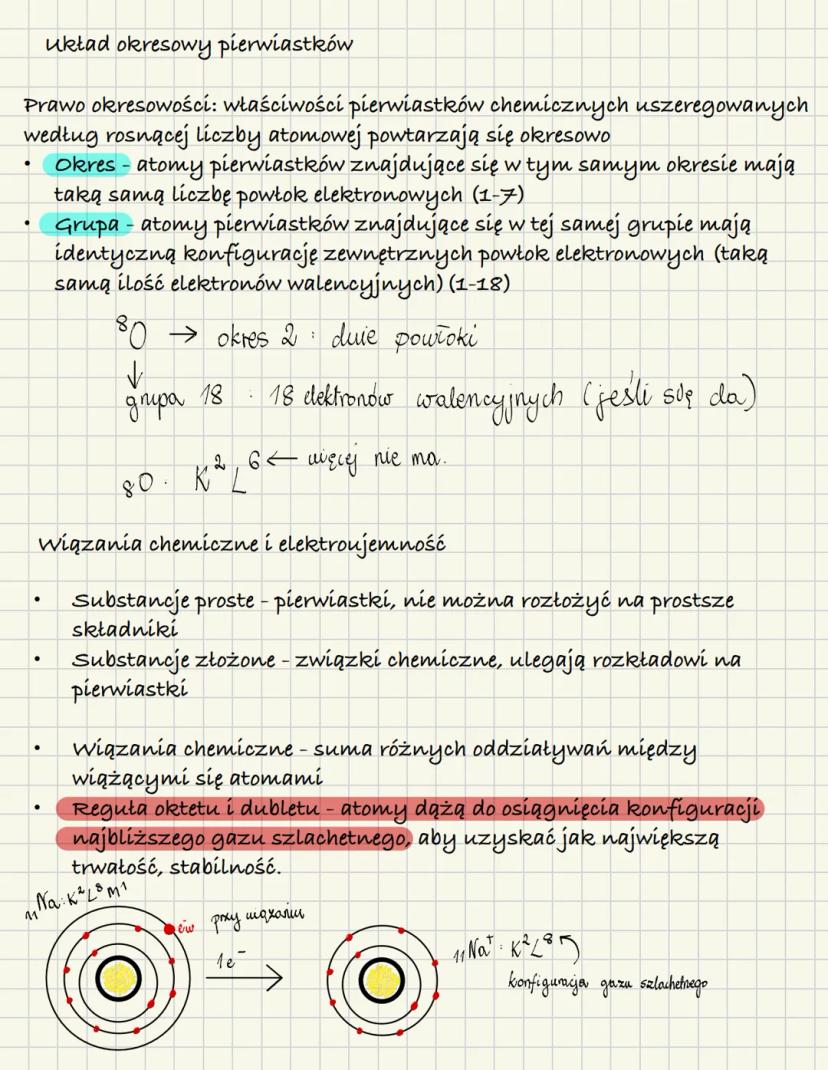 Układ okresowy pierwiastków
Prawo okresowości: właściwości pierwiastków chemicznych uszeregowanych
według rosnącej liczby atomowej powtarzają się okresowo
• Okres - atomy pierwiastków znajdujące się w tym samym okresie mają
taką samą liczbę powłok elektronowych (1-7)
• Grupa - atomy pierwiastków znajdujące się w tej samej grupie mają
identyczną konfigurację zewnętrznych powłok elektronowych (taką
samą ilość elektronów walencyjnych) (1-18)
⁸O → okres 2 : dwie powłoki
↓
grupa 18 : 18 elektronów walencyjnych (jeśli się da)
₈O : K² L⁶ ← więcej nie ma.
Wiązania chemiczne i elektroujemność
• Substancje proste - pierwiastki, nie można rozłożyć na prostsze
składniki
• Substancje złożone - związki chemiczne, ulegają rozkładowi na
pierwiastki
• Wiązania chemiczne - suma różnych oddziaływań między
wiążącymi się atomami
• Reguła oktetu i dubletu - atomy dążą do osiągnięcia konfiguracji
najbliższego gazu szlachetnego, aby uzyskać jak największą
trwałość, stabilność.
₁₁Na: K² L⁸ M¹
e⁻w
przy wiązaniu
1e⁻
₁₁Na⁺ : K² L⁸
konfiguracja gazu szlachetnego